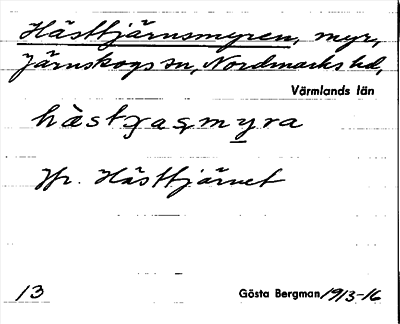 Hästtjärnsmyren, myr,
Järnskogs sn, Nordmarks hd,
Värmlands län
Jfr. Hästtjärnet
13 Gösta Bergman 1913-16